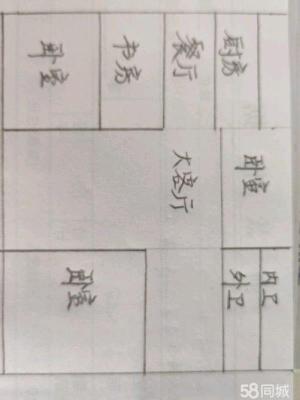 厨房
餐厅
书房
卧室
卧室
大客厅
内卫
外卫
卧室
58同城